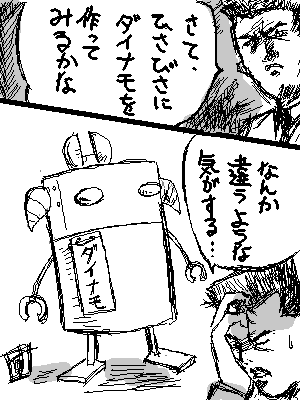 さて、
ひさびさに
ダイナモを
作って
みるかな
なんか
違うような
気がする…
ダイナモ